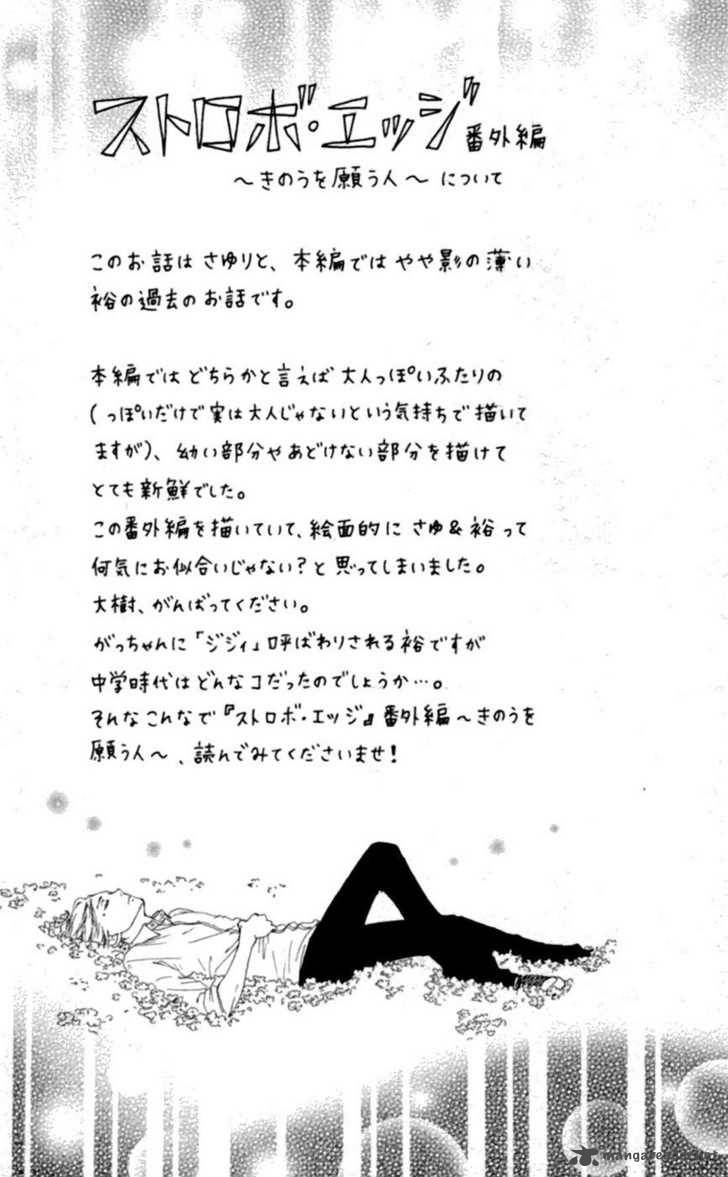 ストロボ・エッジ 番外編
～きのうを願う人～ について
このお話は さゆりと、本編では やや影の薄い
裕の過去のお話です。
本編では どちらかと言えば 大人っぽいふたりの
(っぽいだけで 実は大人じゃないという気持ちで 描いて
ますが)、幼い部分や あどけない部分を 描けて
とても新鮮でした。
この番外編を描いていて、絵面的に さゆ&裕って
何気にお似合いじゃない?と 思ってしまいました。
大樹、がんばってください。
がっちゃんに「ジジィ」呼ばわりされる裕ですが
中学時代は どんなコだったのでしょうか…。
そんなこんなで『ストロボ・エッジ』番外編～きのうを
願う人～、読んでみてくださいませ!